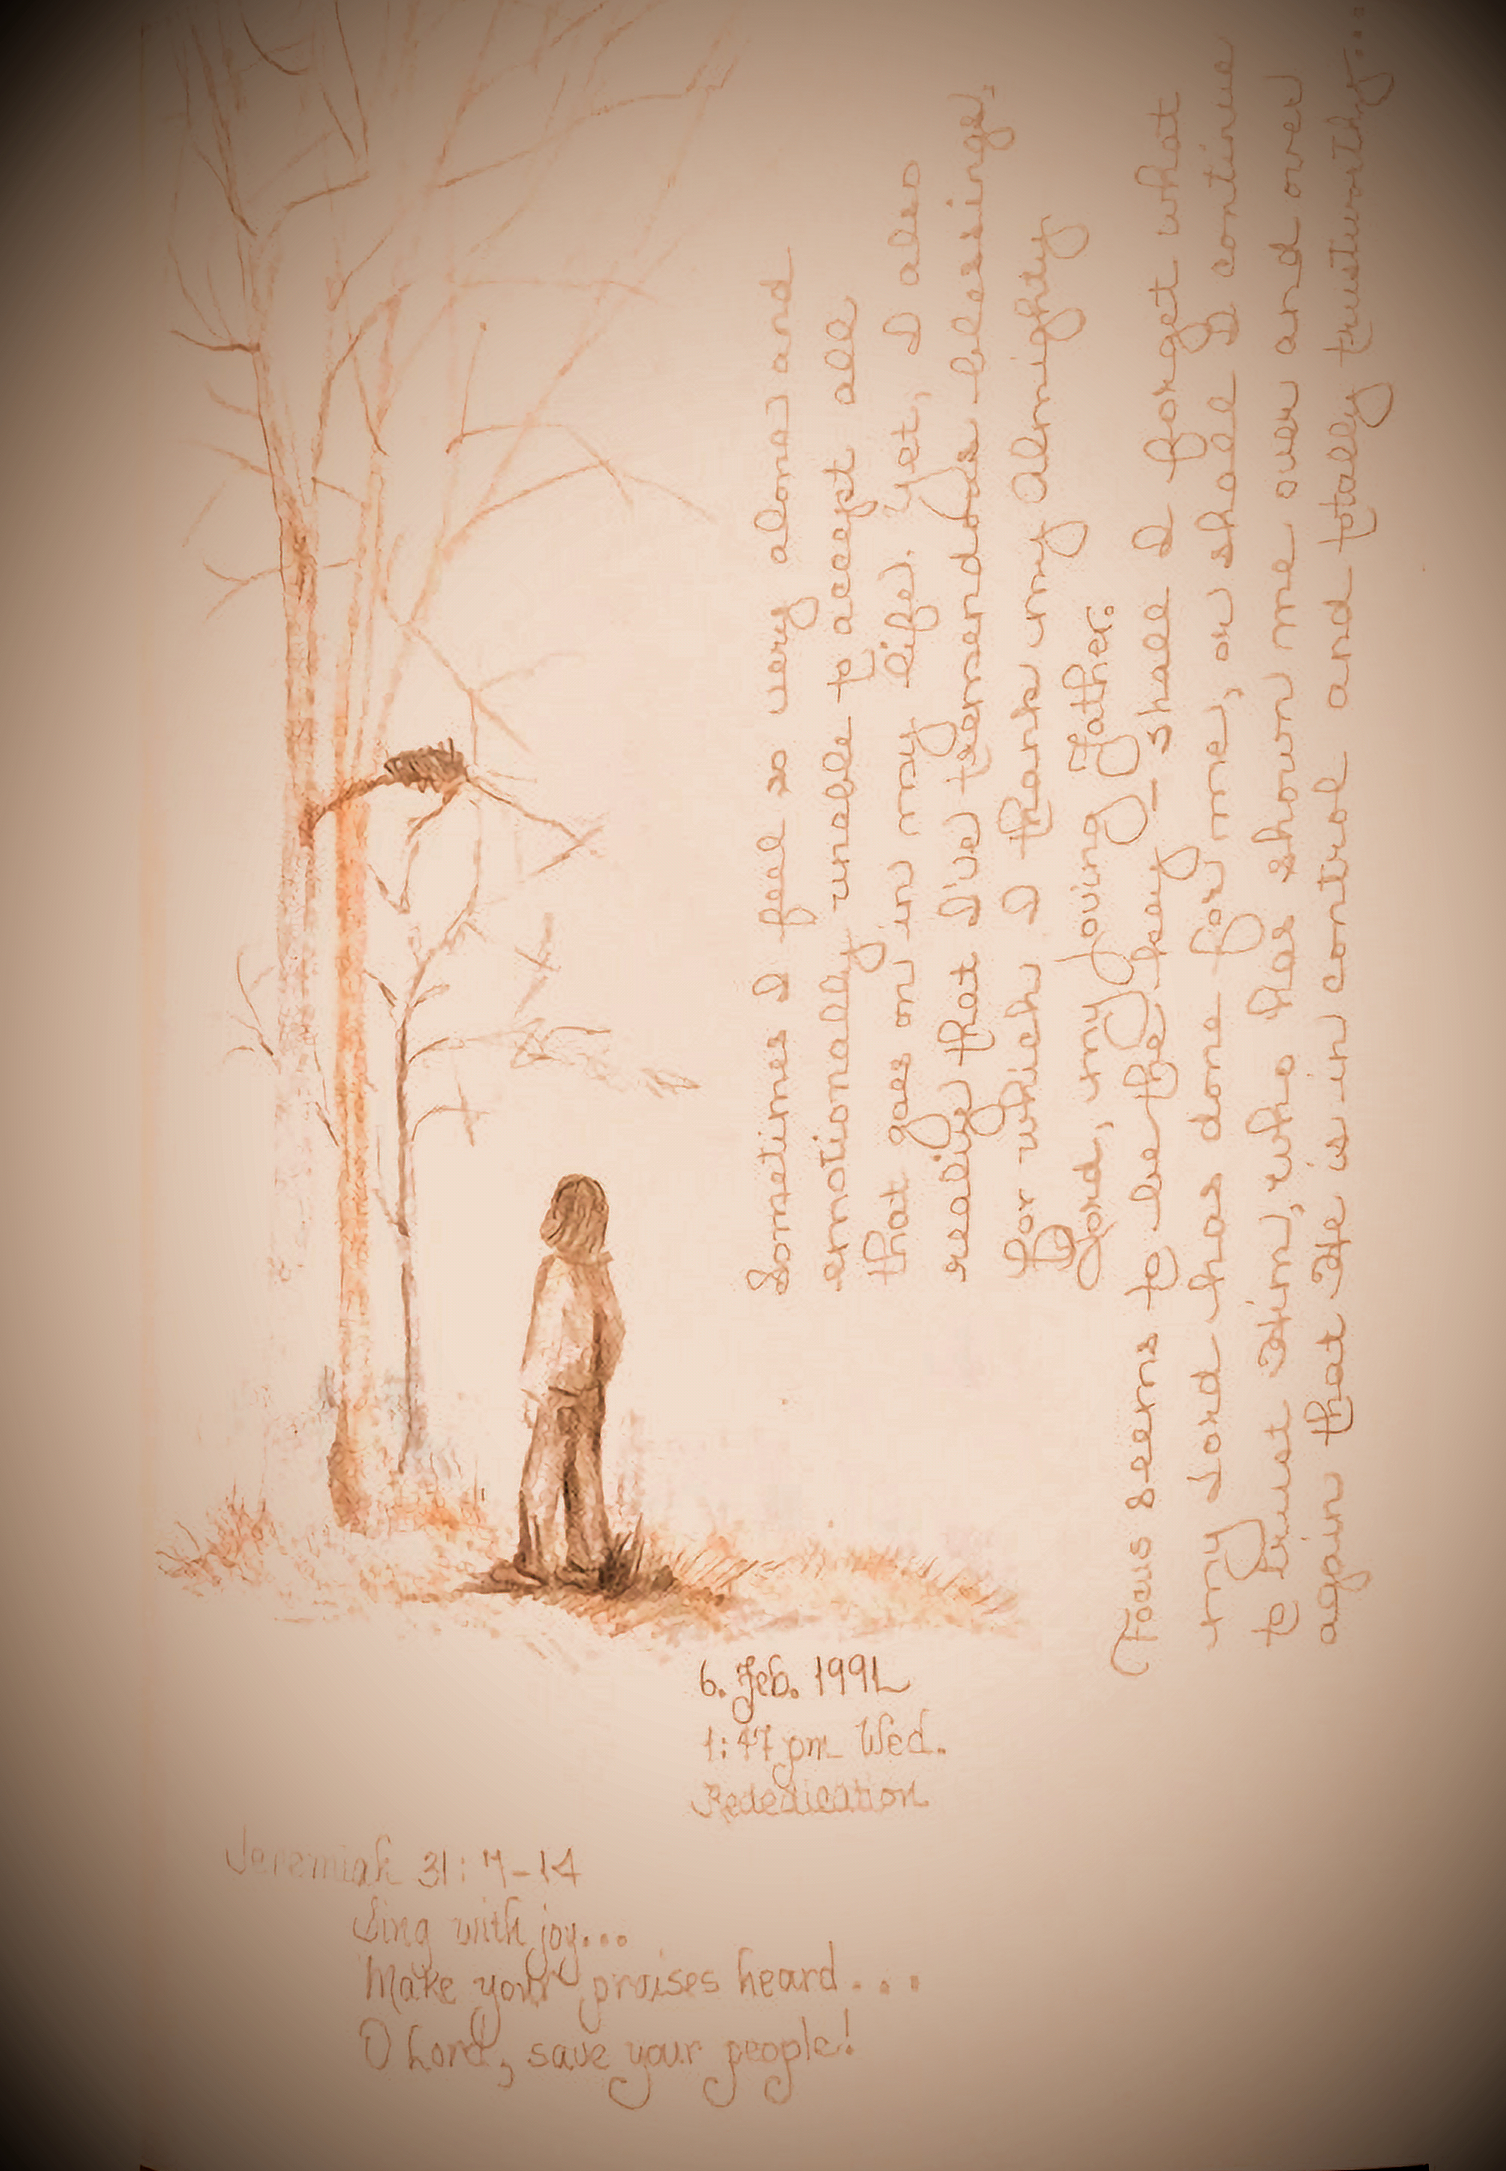 Sometimes I feel so very alone and
emotionally unable to accept all
that goes on in my life. Yet, I also
realize that I've tremendous blessings,
for which I thank my Almighty
Lord, my loving Father.
Focus seems to be the key – shall I forget what
my Lord has done for me, or shall I continue
to trust Him, who has shown me over and over
again that He is in control and totally trustworthy...
6. Feb. 1991
1:47 pm Wed.
Rededication
Jeremiah 31:7-14
Sing with joy...
Make your praises heard....
O Lord, save your people!